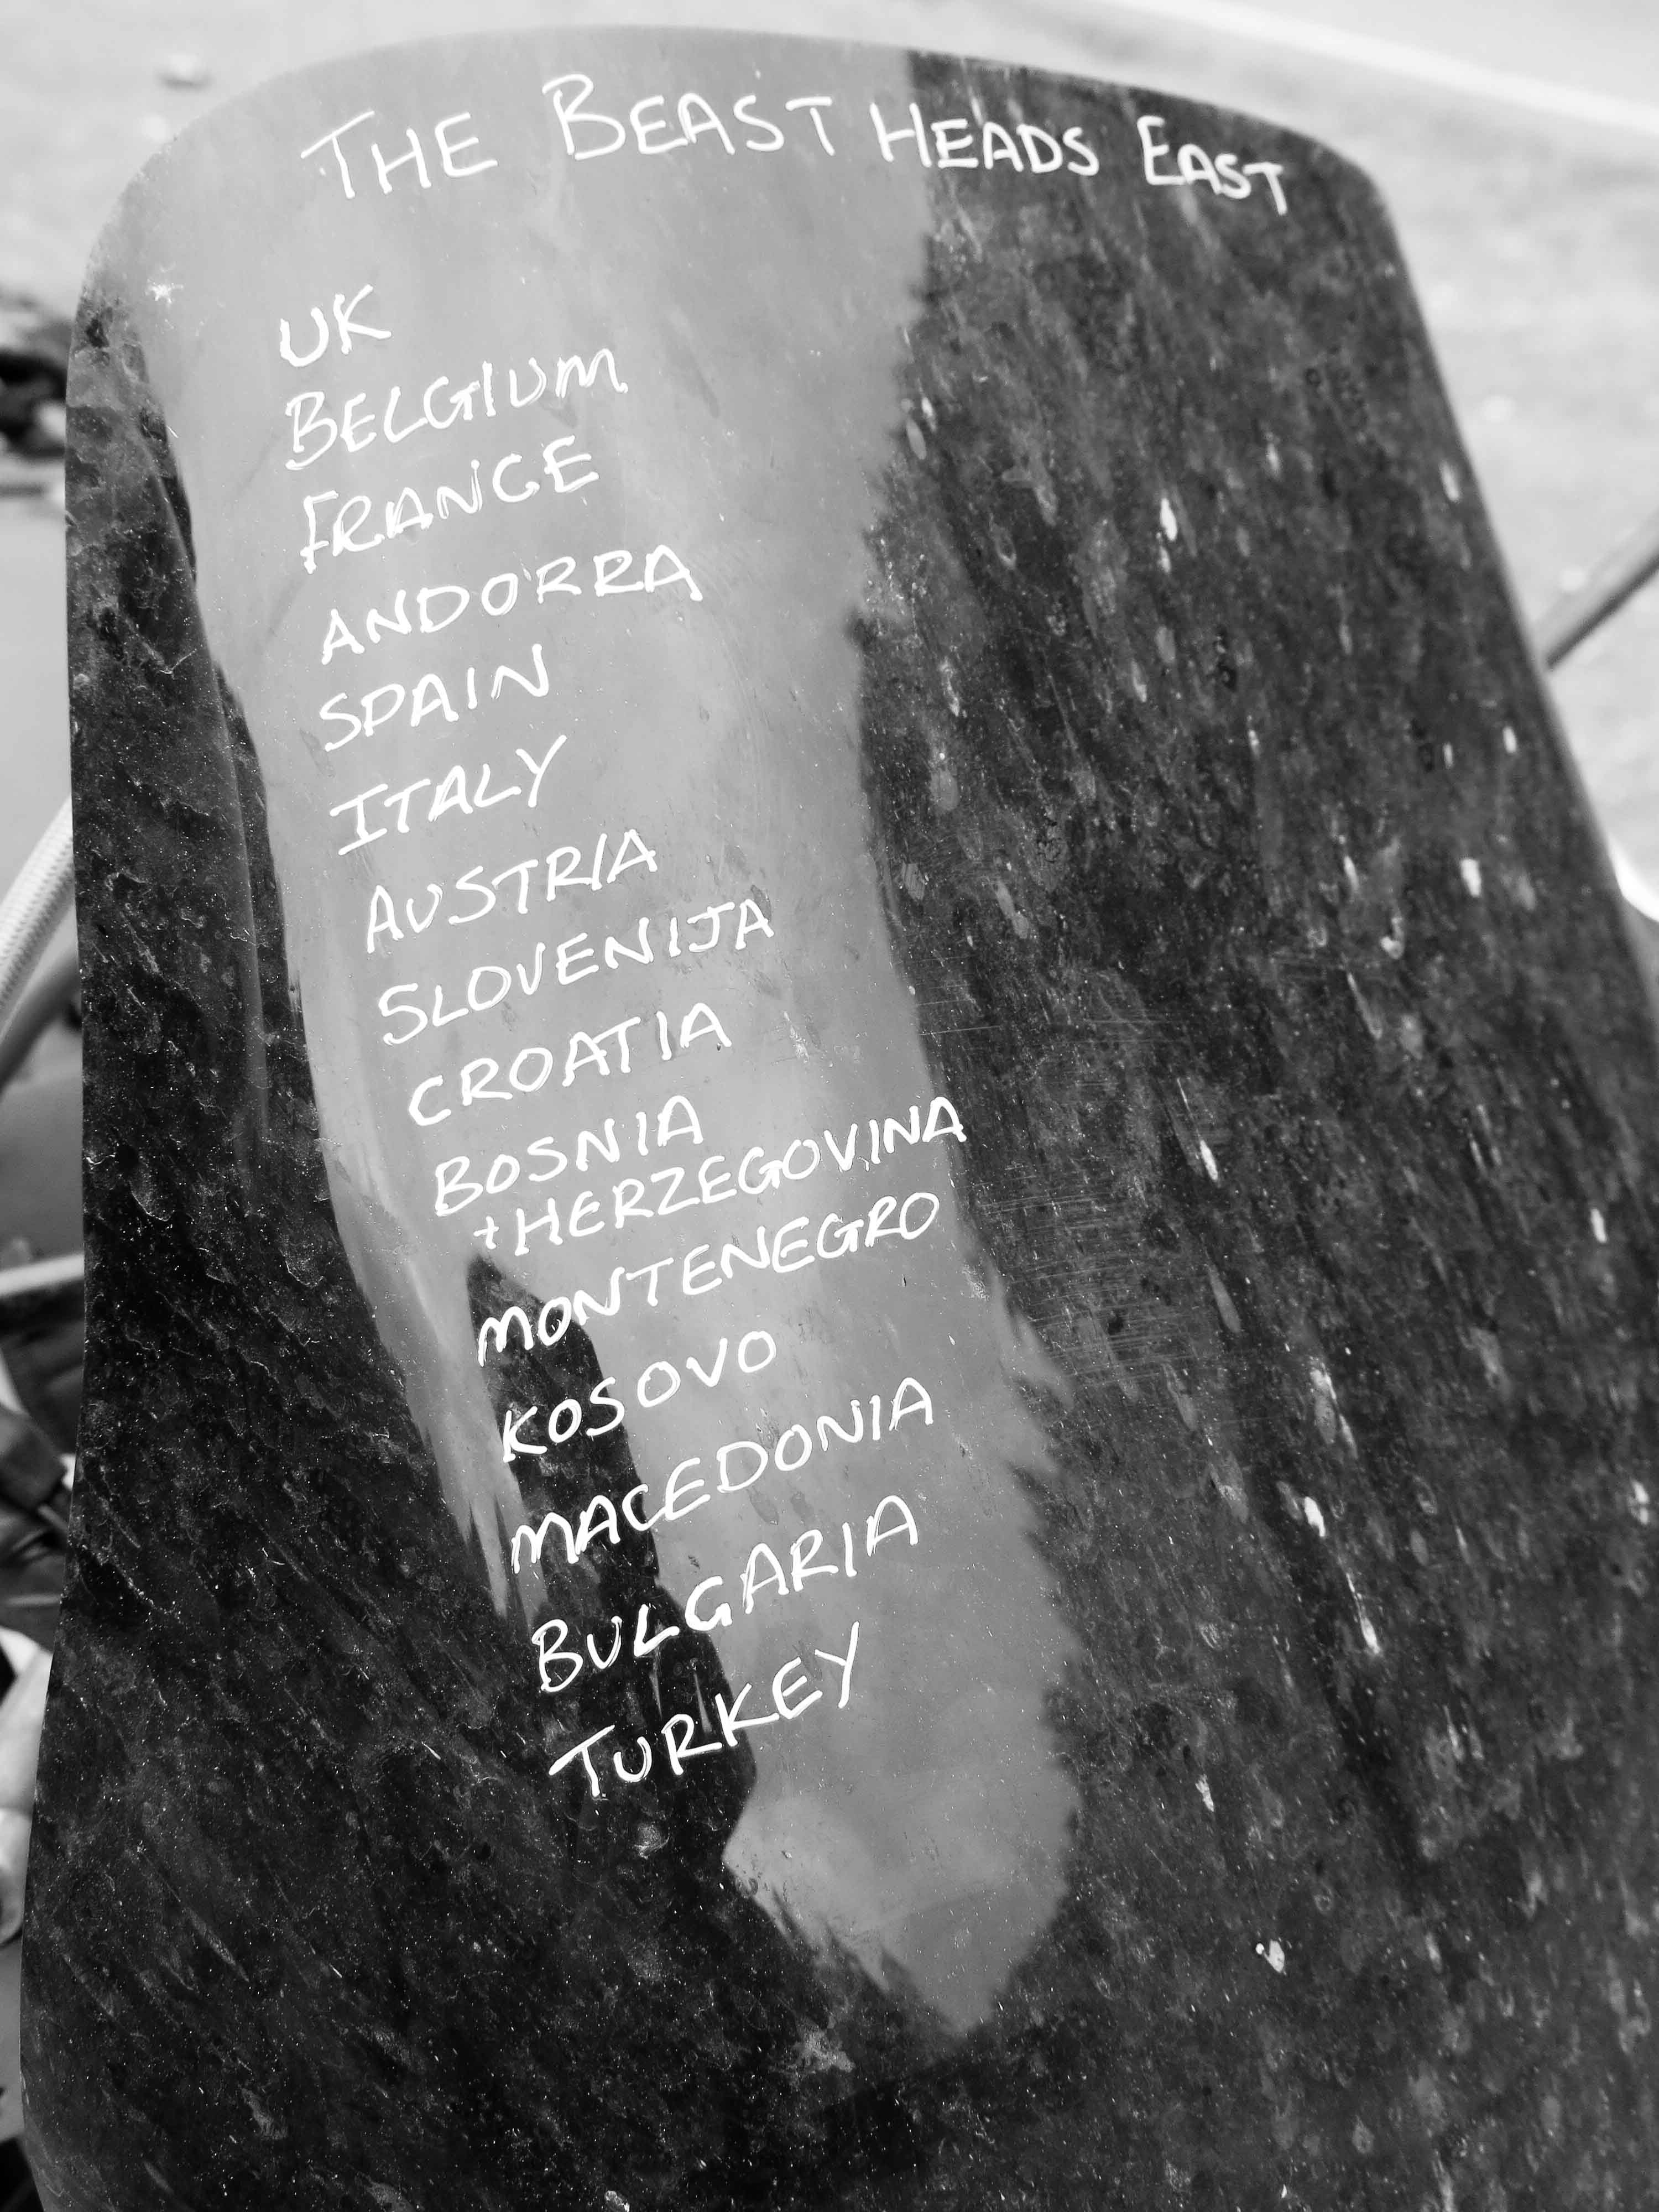 THE BEAST HEADS EAST
UK
BELGIUM
FRANCE
ANDORRA
SPAIN
ITALY
AUSTRIA
SLOVENIJA
CROATIA
BOSNIA
+HERZEGOVINA
MONTENEGRO
KOSOVO
MACEDONIA
BULGARIA
TURKEY